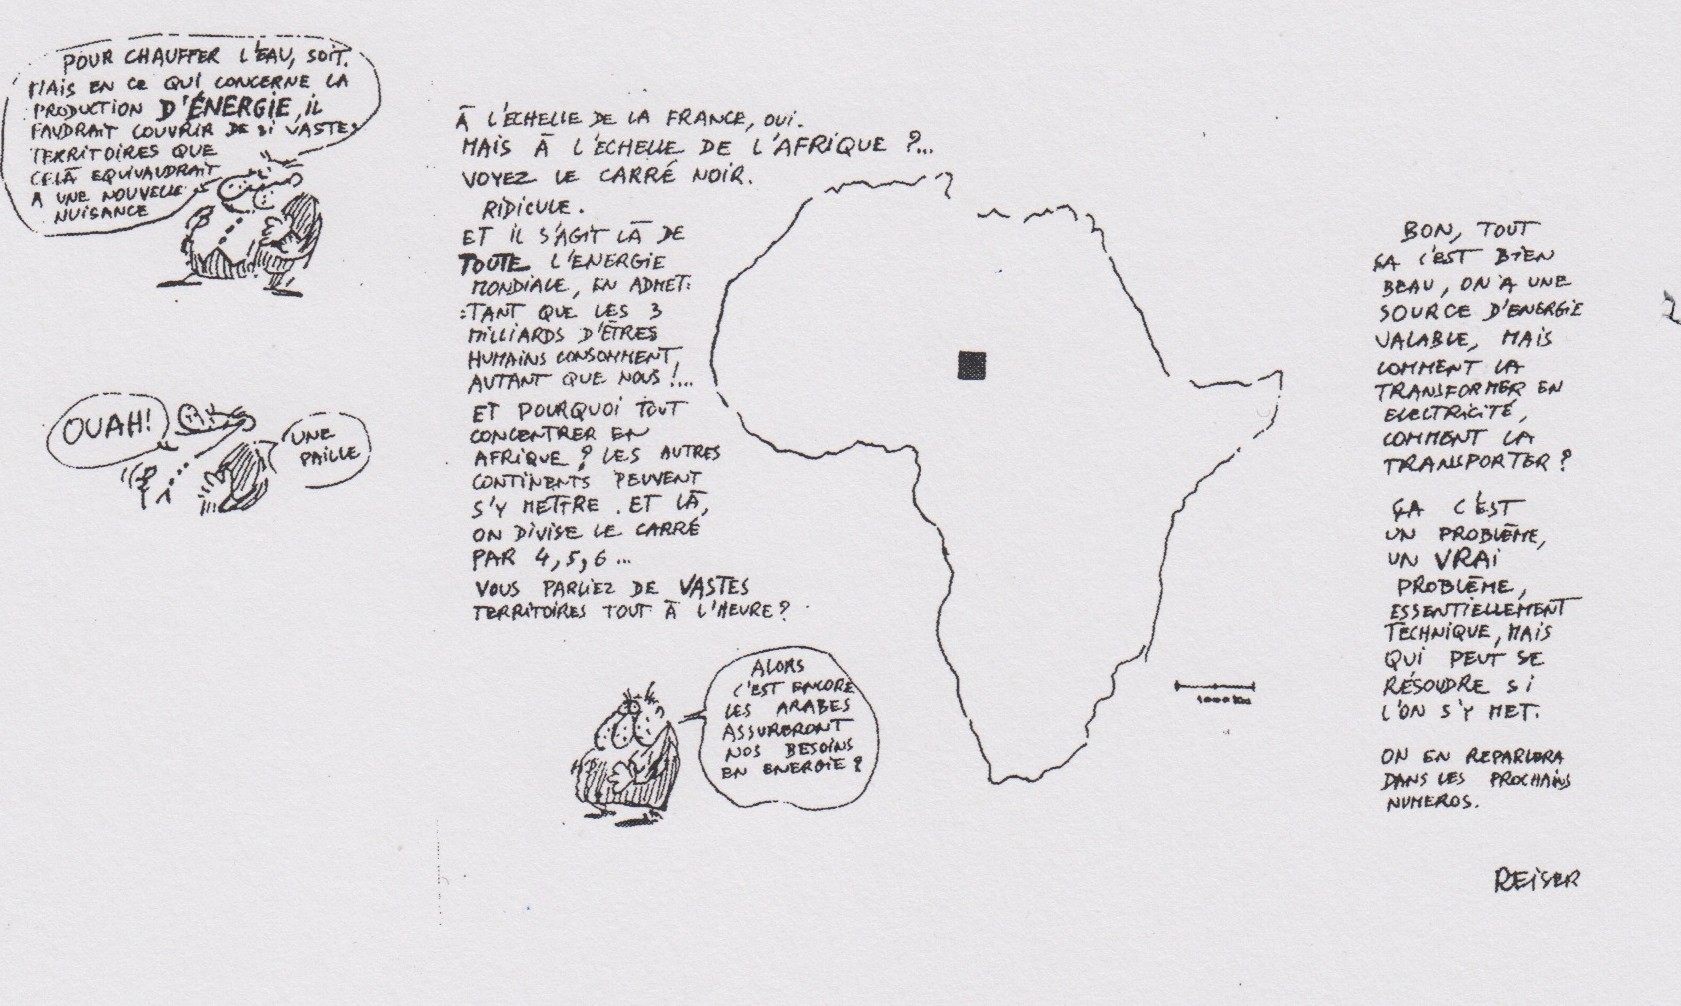 POUR CHAUFFER L'EAU, SOIT.
MAIS EN CE QUI CONCERNE LA
PRODUCTION D'ÉNERGIE, IL
FAUDRAIT COUVRIR DE SI VASTES
TERRITOIRES QUE
CELÀ EQUIVAUDRAIT
A UNE NOUVELLE
NUISANCE
OUAH!
UNE
PAILLE
À L'ECHELLE DE LA FRANCE, OUI.
MAIS À L'ECHELLE DE L'AFRIQUE ?...
VOYEZ LE CARRÉ NOIR.
RIDICULE.
ET IL S'AGIT LÀ DE
TOUTE L'ENERGIE
MONDIALE, EN ADMET:
:TANT QUE LES 3
MILLIARDS D'ÊTRES
HUMAINS CONSOMMENT,
AUTANT QUE NOUS !...
ET POURQUOI TOUT
CONCENTRER EN
AFRIQUE ? LES AUTRES
CONTINENTS PEUVENT
S'Y METTRE . ET LÀ,
ON DIVISE LE CARRÉ
PAR 4, 5, 6 ...
VOUS PARLIEZ DE VASTES
TERRITOIRES TOUT À L'HEURE ?
ALORS
C'EST ENCORE
LES ARABES
ASSURERONT
NOS BESOINS
EN ENERGIE ?
1000 Km
BON, TOUT
ÇA C'EST BIEN
BEAU, ON A UNE
SOURCE D'ENERGIE
VALABLE, MAIS
COMMENT LA
TRANSFORMER EN
ELECTRICITÉ,
COMMENT LA
TRANSPORTER ?
ÇA C'EST
UN PROBLÈME,
UN VRAI
PROBLÈME,
ESSENTIELLEMENT
TECHNIQUE, MAIS
QUI PEUT SE
RÉSOUDRE SI
L'ON S'Y MET.
ON EN REPARLERA
DANS LES PROCHAINS
NUMEROS.
REISER